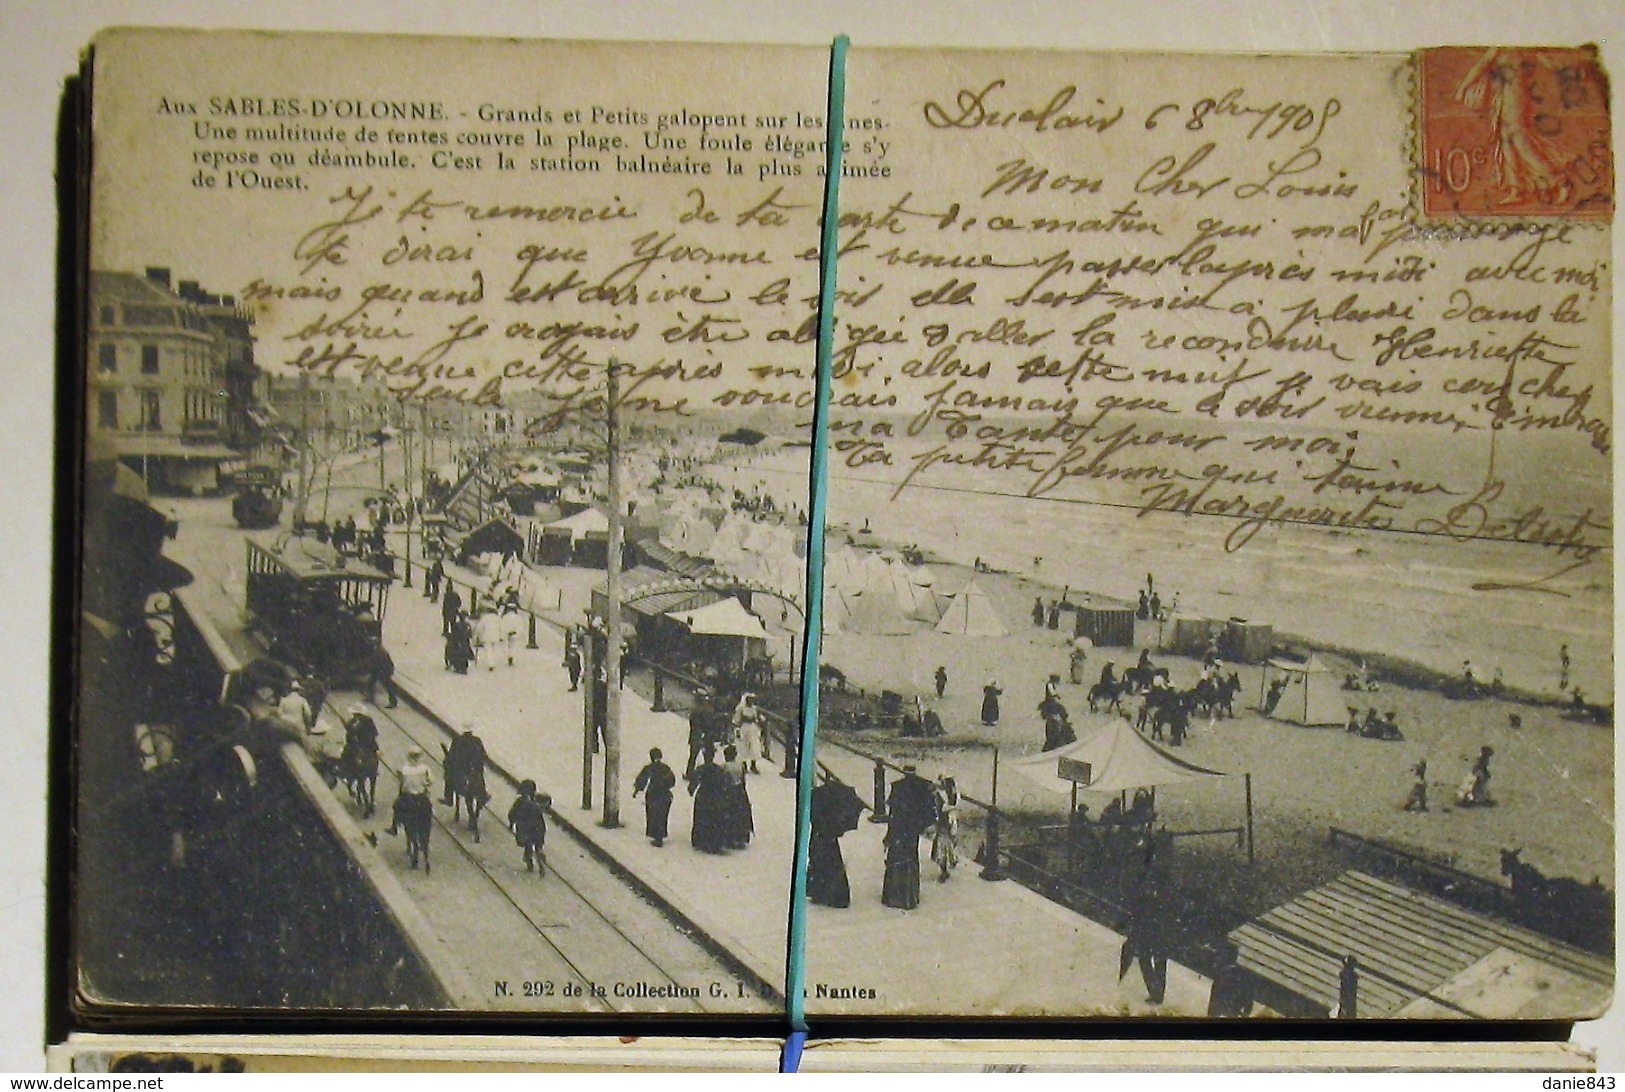 Aux SABLES-D'OLONNE. - Grands et Petits galopent sur les nes.
Une multitude de tentes couvre la plage. Une foule élégan e s'y
repose ou déambule. C'est la station balnéaire la plus a imée
de l'Ouest.
Duclair 6 8bre 1905
10c
Mon Cher Louis
Je te remercie de ta carte de ce matin qui m'a fai
te dirai que Yvonne est venue passer l'après midi avec moi
mais quand est arrivé le soir elle s'est mise à pleuré dans la
soirée je croyais être obligée d'aller la reconduire Henriette
est venue cette après midi, alors cette nuit je vais coucher
seule je ne voudrais jamais que ce soir vienne, Embrasse
ma Tante pour moi,
Ta petite femme qui t'aime
Marguerite
N. 292 de la Collection G. I. D. Nantes
danie843